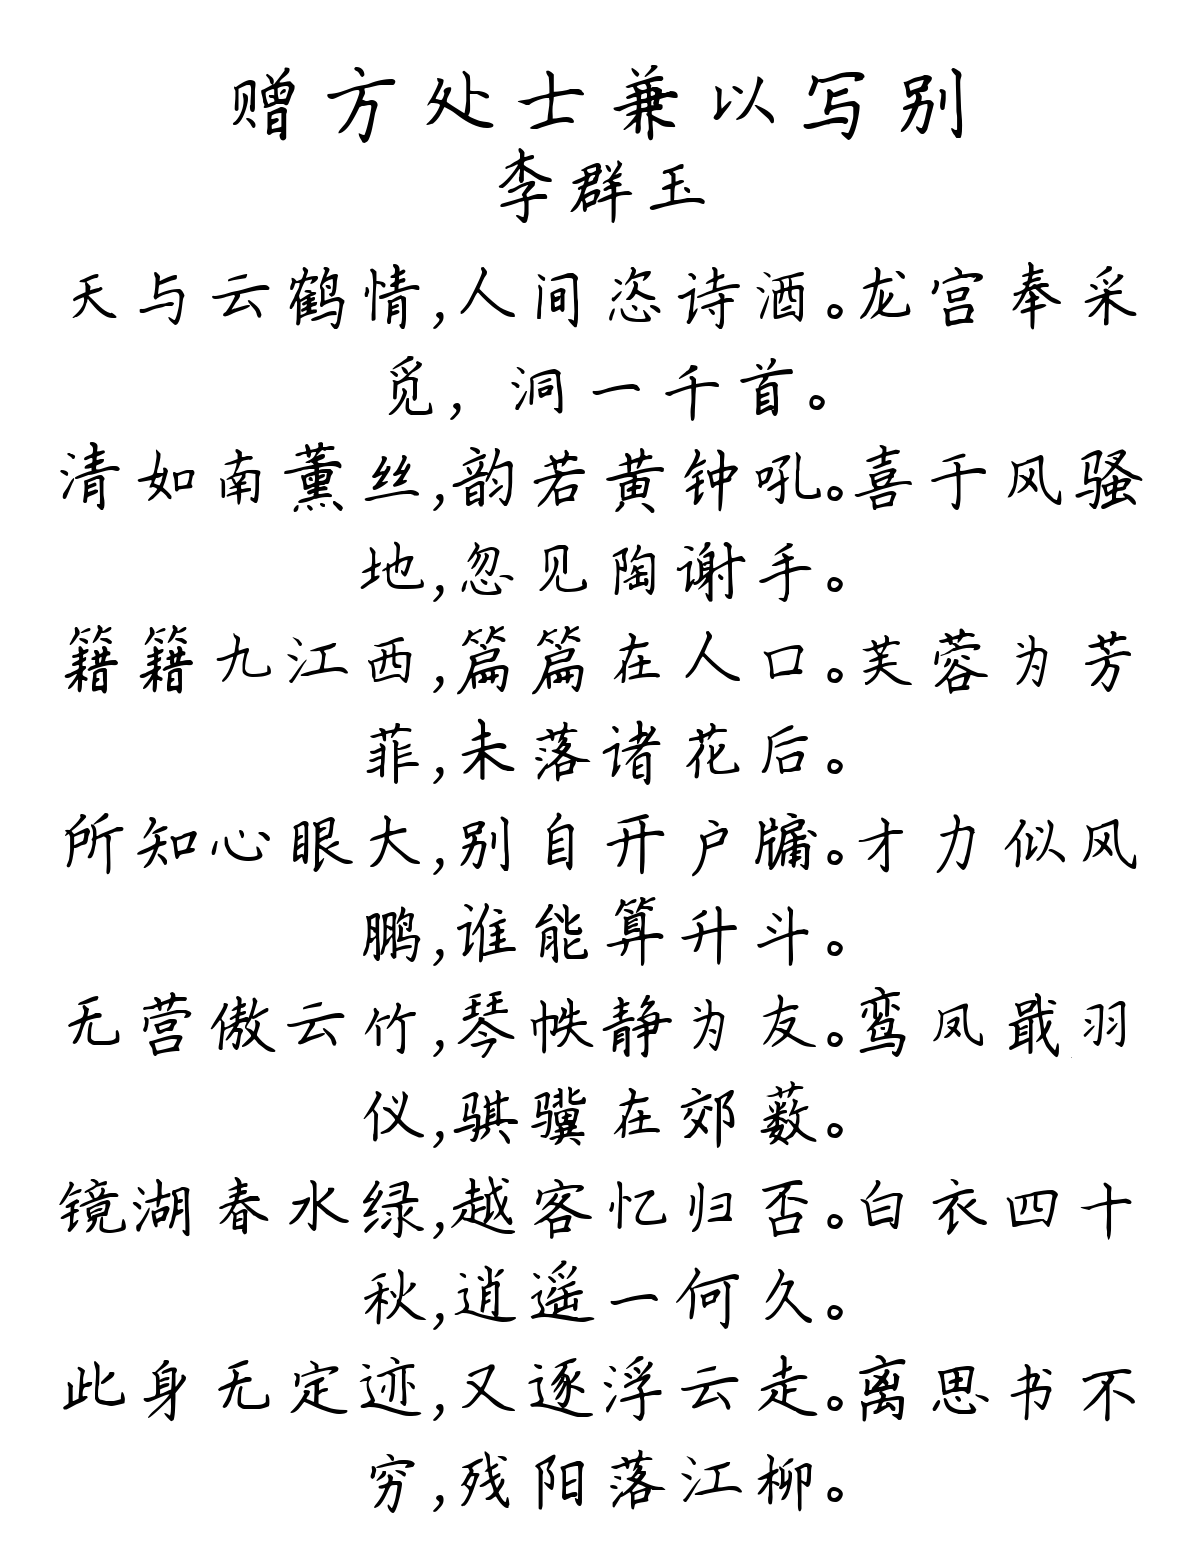 赠方处士兼以写别
李群玉
天与云鹤情,人间恣诗酒。龙宫奉采
觅，洞一千首。
清如南薰丝,韵若黄钟吼。喜于风骚
地,忽见陶谢手。
籍籍九江西,篇篇在人口。芙蓉为芳
菲,未落诸花后。
所知心眼大,别自开户牖。才力似风
鹏,谁能算升斗。
无营傲云竹,琴帙静为友。鸾凤戢羽
仪,骐骥在郊薮。
镜湖春水绿,越客忆归否。白衣四十
秋,逍遥一何久。
此身无定迹,又逐浮云走。离思书不
穷,残阳落江柳。